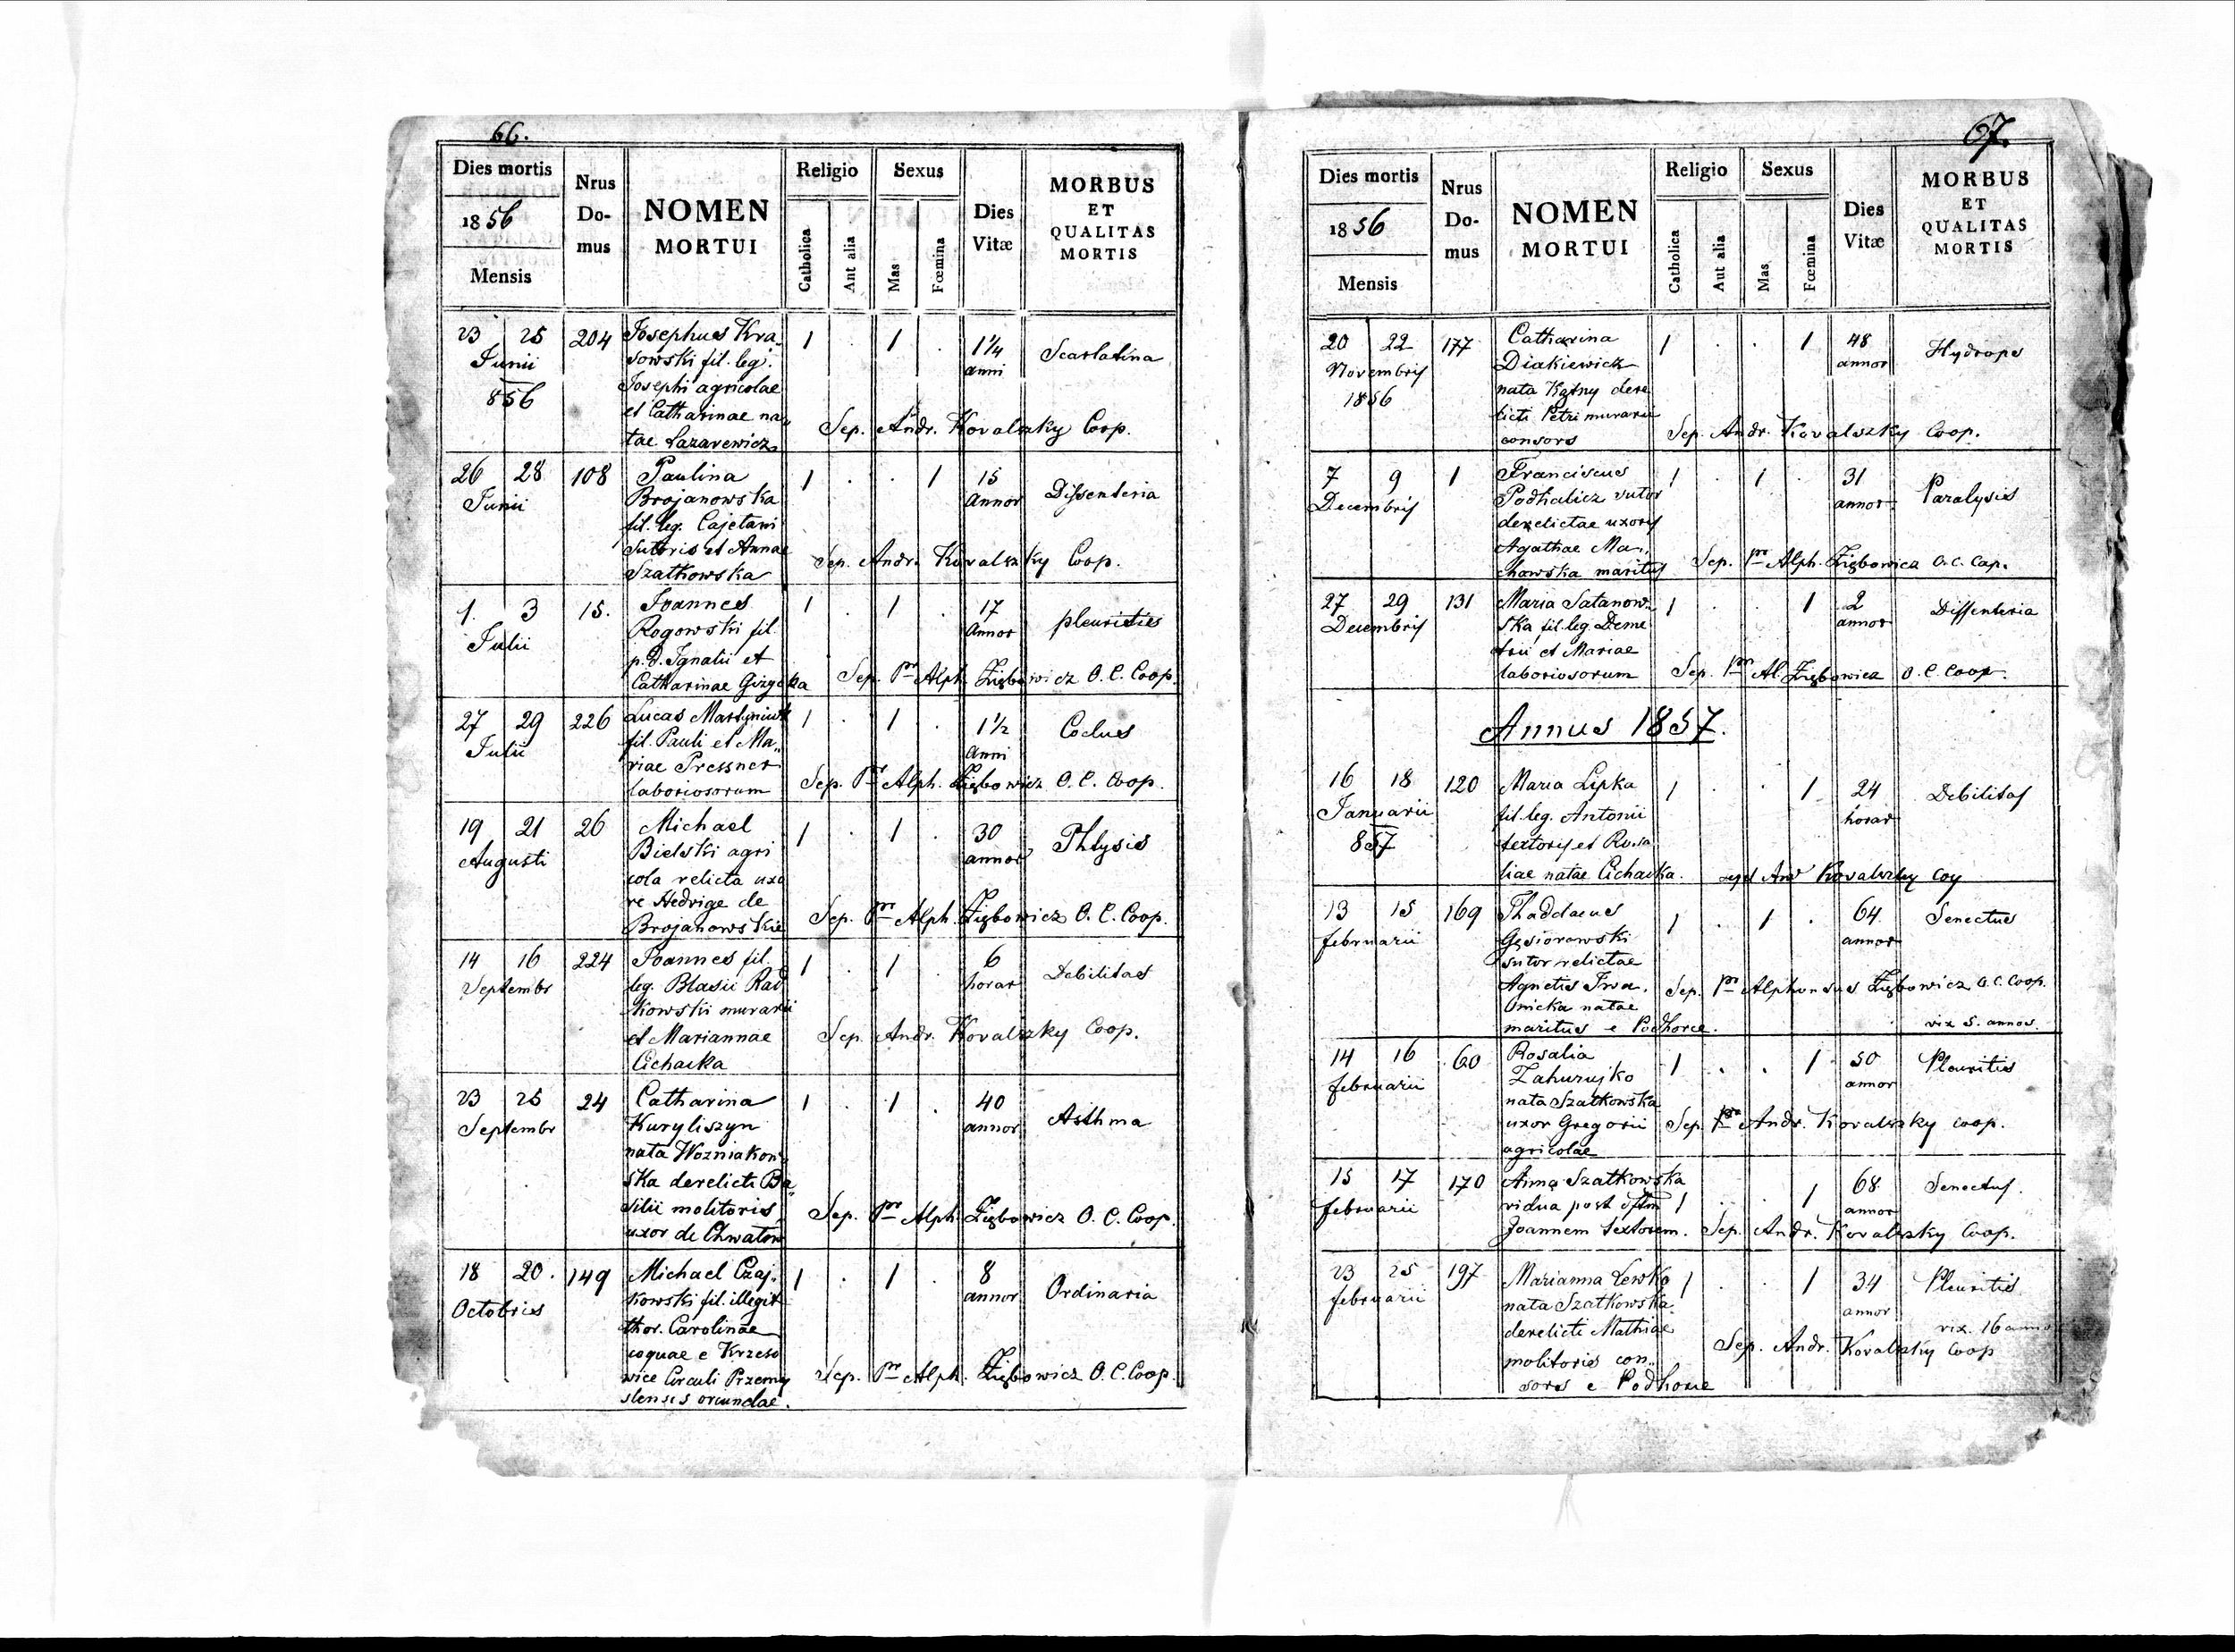 66.
Dies mortis
1856
Mensis
Nrus Do-mus
NOMEN
MORTUI
Religio
Catholica
Aut alia
Sexus
Mas
Fœmina
Dies
Vitæ
MORBUS
ET
QUALITAS
MORTIS
23 25 204 Josephus Kra„ 1 . 1 . 1¼ Scarlatina
Junii sowski fil. leg. anni
856 Josephi agricolae
et Catharinae na„ Sep. Andr. Kovalszky Coop.
tae Lazarewicz
26 28 108 Paulina 1 . . 1 15 Dissenteria
Junii Brojanowska Annor
fil. leg. Cajetani
Sutoris et Annae Sep. Andr. Kovalszky Coop.
Szatkowska
1. 3 15. Joannes 1 . 1 . 17 pleurities
Julii Rogowski fil. Annor
p. d. Ignatii et
Catharinae Gizycka Sep. Pr Alph. Ziębowicz O. C. Coop.
27 29 226 Lucas Martyniuk 1 . 1 . 1½ Coclus
Julii fil. Pauli et Ma„ Anni
riae Pressner
laboriosorum Sep. Pr Alph. Ziębowicz O. C. Coop.
19 21 26 Michael 1 . 1 . 30 Phtysis
Augusti Bielski agri annor
cola relicta uxo
re Hedvige de Sep. Pr Alph. Ziębowicz O. C. Coop.
Brojanowskie
14 16 224 Joannes fil. 1 . 1 . 6 Debilitas
Septembr leg. Blasii Rad horar
kowski murarii
et Mariannae Sep. Andr. Kovalszky Coop.
Cichacka
23 25 24 Catharina 1 . 1 . 40 Asthma
Septembr Kuryliszyn annor
nata Wozniakow„
ska derelicti Ba„
silii molitoris Sep. Pr Alph. Ziębowicz O. C. Coop.
uxor de Chwatow
18 20. 149 Michael Czaj„ 1 . 1 . 8 Ordinaria
Octobris kowski fil. illegit annor
thor. Carolinae
coquae e Krzeso
vice Circuli Przemy Sep. Pr Alph. Ziębowicz O. C. Coop.
slensis oriundae.
67.
Dies mortis
1856
Mensis
Nrus Do-mus
NOMEN
MORTUI
Religio
Catholica
Aut alia
Sexus
Mas
Fœmina
Dies
Vitæ
MORBUS
ET
QUALITAS
MORTIS
20 22 177 Catharina 1 . . 1 48 Hydrops
Novembris Diakiewicz annor
1856 nata Kątny dere
licti Petri murarii
consors Sep. Andr. Kovalszky Coop.
7 9 1 Franciscus 1 . 1 . 31 Paralysis
Decembris Podhalicz sutor annor
derelictae uxoris
Agathae Ma„
chowska maritus Sep. Pr Alph. Ziębowicz O. C. Cap.
27 29 131 Maria Satanow„ 1 . . 1 2 Dissenteria
Decembris ska fil. leg. Deme annor
trii et Mariae
laboriosorum Sep. Pr Al. Ziębowicz O. C. Coop.
Annus 1857.
16 18 120 Maria Lipka 1 . . 1 24 Debilitas
Januarii fil. leg. Antonii horar
857 textoris et Rosa
liae natae Cichacka. And Kovalszky
13 15 169 Thaddaeus 1 . 1 . 64 Senectus
februarii Gęsiorowski annor
sutor relictae
Agnetis Iwa„ Sep. Pr Alphonsus Ziębowicz O. C. Coop.
nicka natae
maritus e Podhorce. vix 5. annos.
14 16 60 Rosalia 1 . . 1 50 Pleuritis
februarii Zahurujko annor
nata Szatkowska
uxor Gregorii Sep. Pr Andr. Kovalszky coop.
agricolae
15 17 170 Anna Szatkowska 1 . . 1 68 Senectus.
februarii vidua post annor
Joannem textorem. Sep. Andr. Kovalszky Coop.
23 25 197 Marianna Lewko 1 . . 1 34 Pleuritis
februarii nata Szatkowska annor
derelicti Mathiae vix. 16 anno
molitoris con„ Sep. Andr. Kovalszky Coop
sors e Podhorce